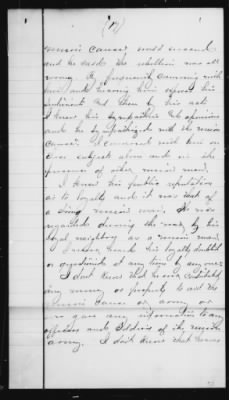 (12)
union cause, would succeed
and he said the rebellion was all
wrong. By frequently conversing with
him and hearing him express his
sentiments and then by his acts
I knew his sympathies his opinions
and he sympathized with the union
cause. I conversed with him on
our subject alone and in the
presence of other union men.
I knew his public reputation
as to loyalty and it was that of
a union man. He was
regarded during the war by his
loyal neighbors as a union man
I never heard his loyalty doubted
or questioned at any time by any one.
I don't know that he ever contributed
any money or property to aid the
union cause or army or
ever gave any information to any
officers and soldiers of the union
army. I don't know that he was